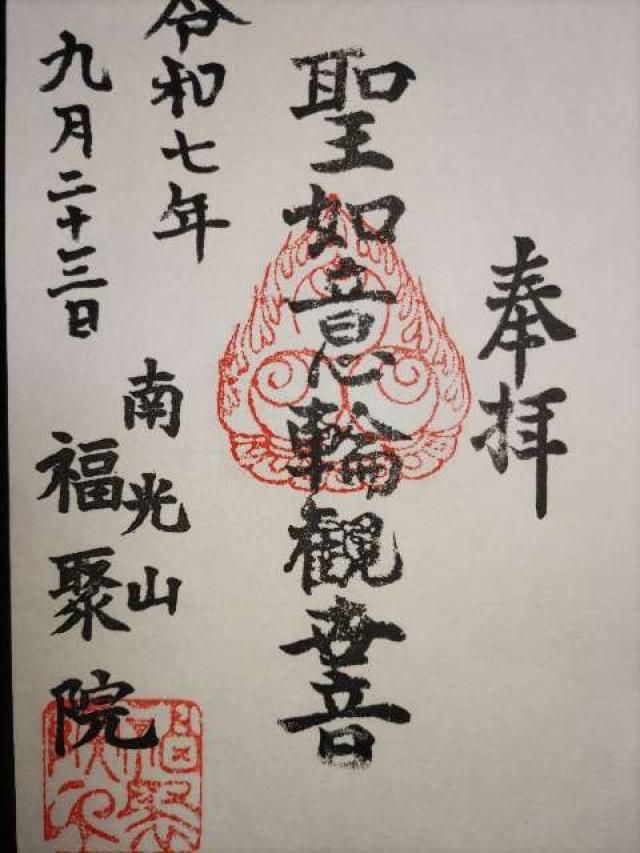 奉拝
聖如意輪観世音
令和七年
九月二十三日
南光山
福聚院